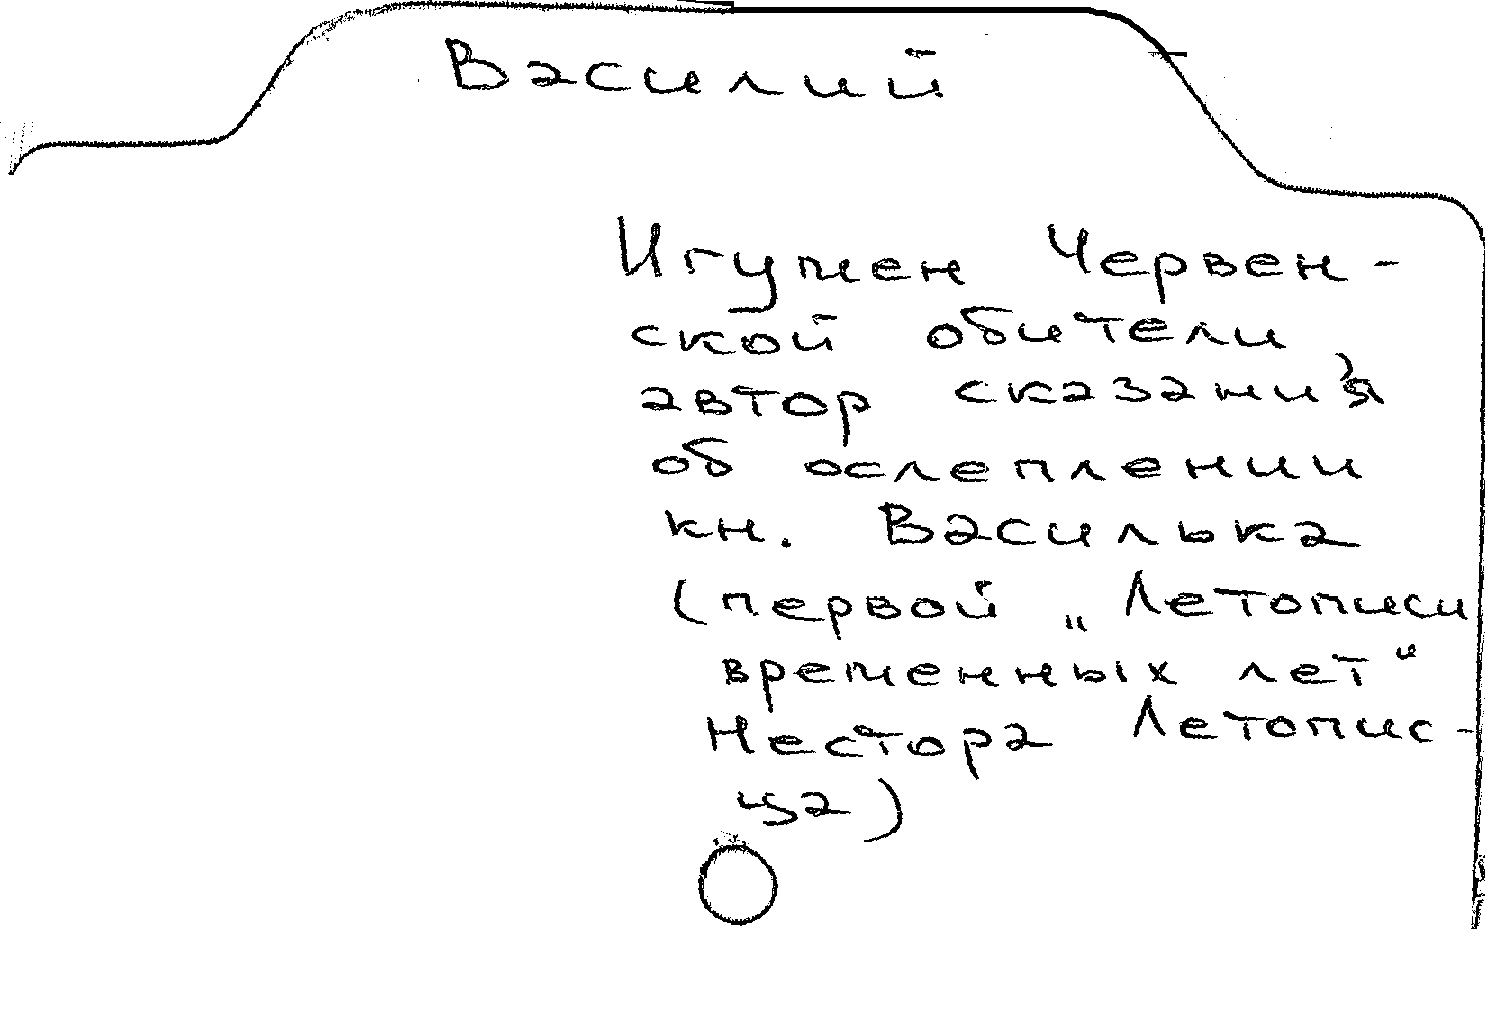 Василий
Игумен Червен-
ской обители,
автор сказания
об ослеплении
кн. Василька
(первой „Летописи
временных лет"
Нестора Летопис-
ца)